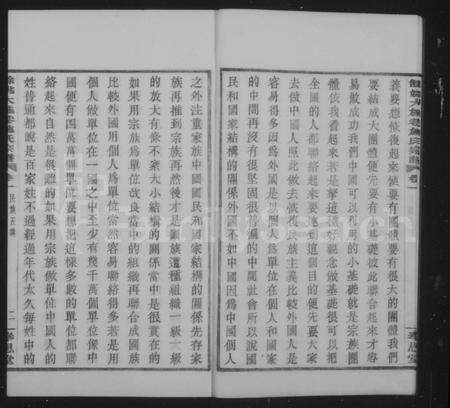 義要想恢復起來便要有團體要有很大的團體我們
要結成大團體便先要有小基礎彼此聯合起來才容
易做成功我們中國可以利用的小基礎就是宗族團
體依我看起來若是拿這種觀念做基礎很可以把
全國的人都聯絡起來要達到這個目的便先要大家
去做中國人照此做去恢復民族主義比較外國人是
容易得多因為外國是以個人為單位在個人和國家
的中間再沒有很堅固很普遍的中間社會所以說國
民和國家結構的關係外國不如中國因為中國個人
之外注重家族中國國民和國家結構的關係先有家
族再推到宗族再然後才是國族這種組織一級一級
的放大有條不紊大小結構的關係當中是很實在的
如果用宗族為單位改良當中的組織再聯合成國族
比較外國用個人為單位當然容易聯絡得多若是用
個人做單位在一國之中至少有幾千萬個單位像中
國便有四萬萬個單位要想將這樣多數的單位都聯
絡起來自然是很難的如果用宗族做單位中國人的
姓普通都說是百家姓不過經過年代太久每姓中的
卷一 民族五講 二